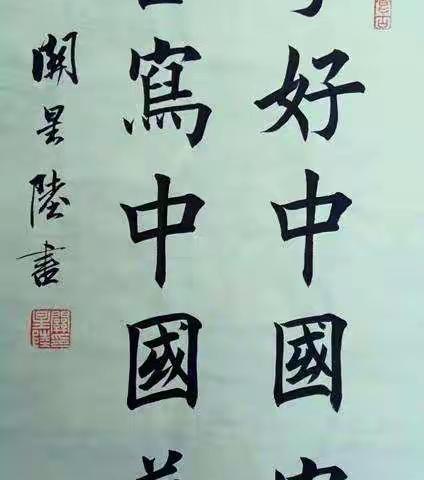 好中國
寫中國
關星陸書